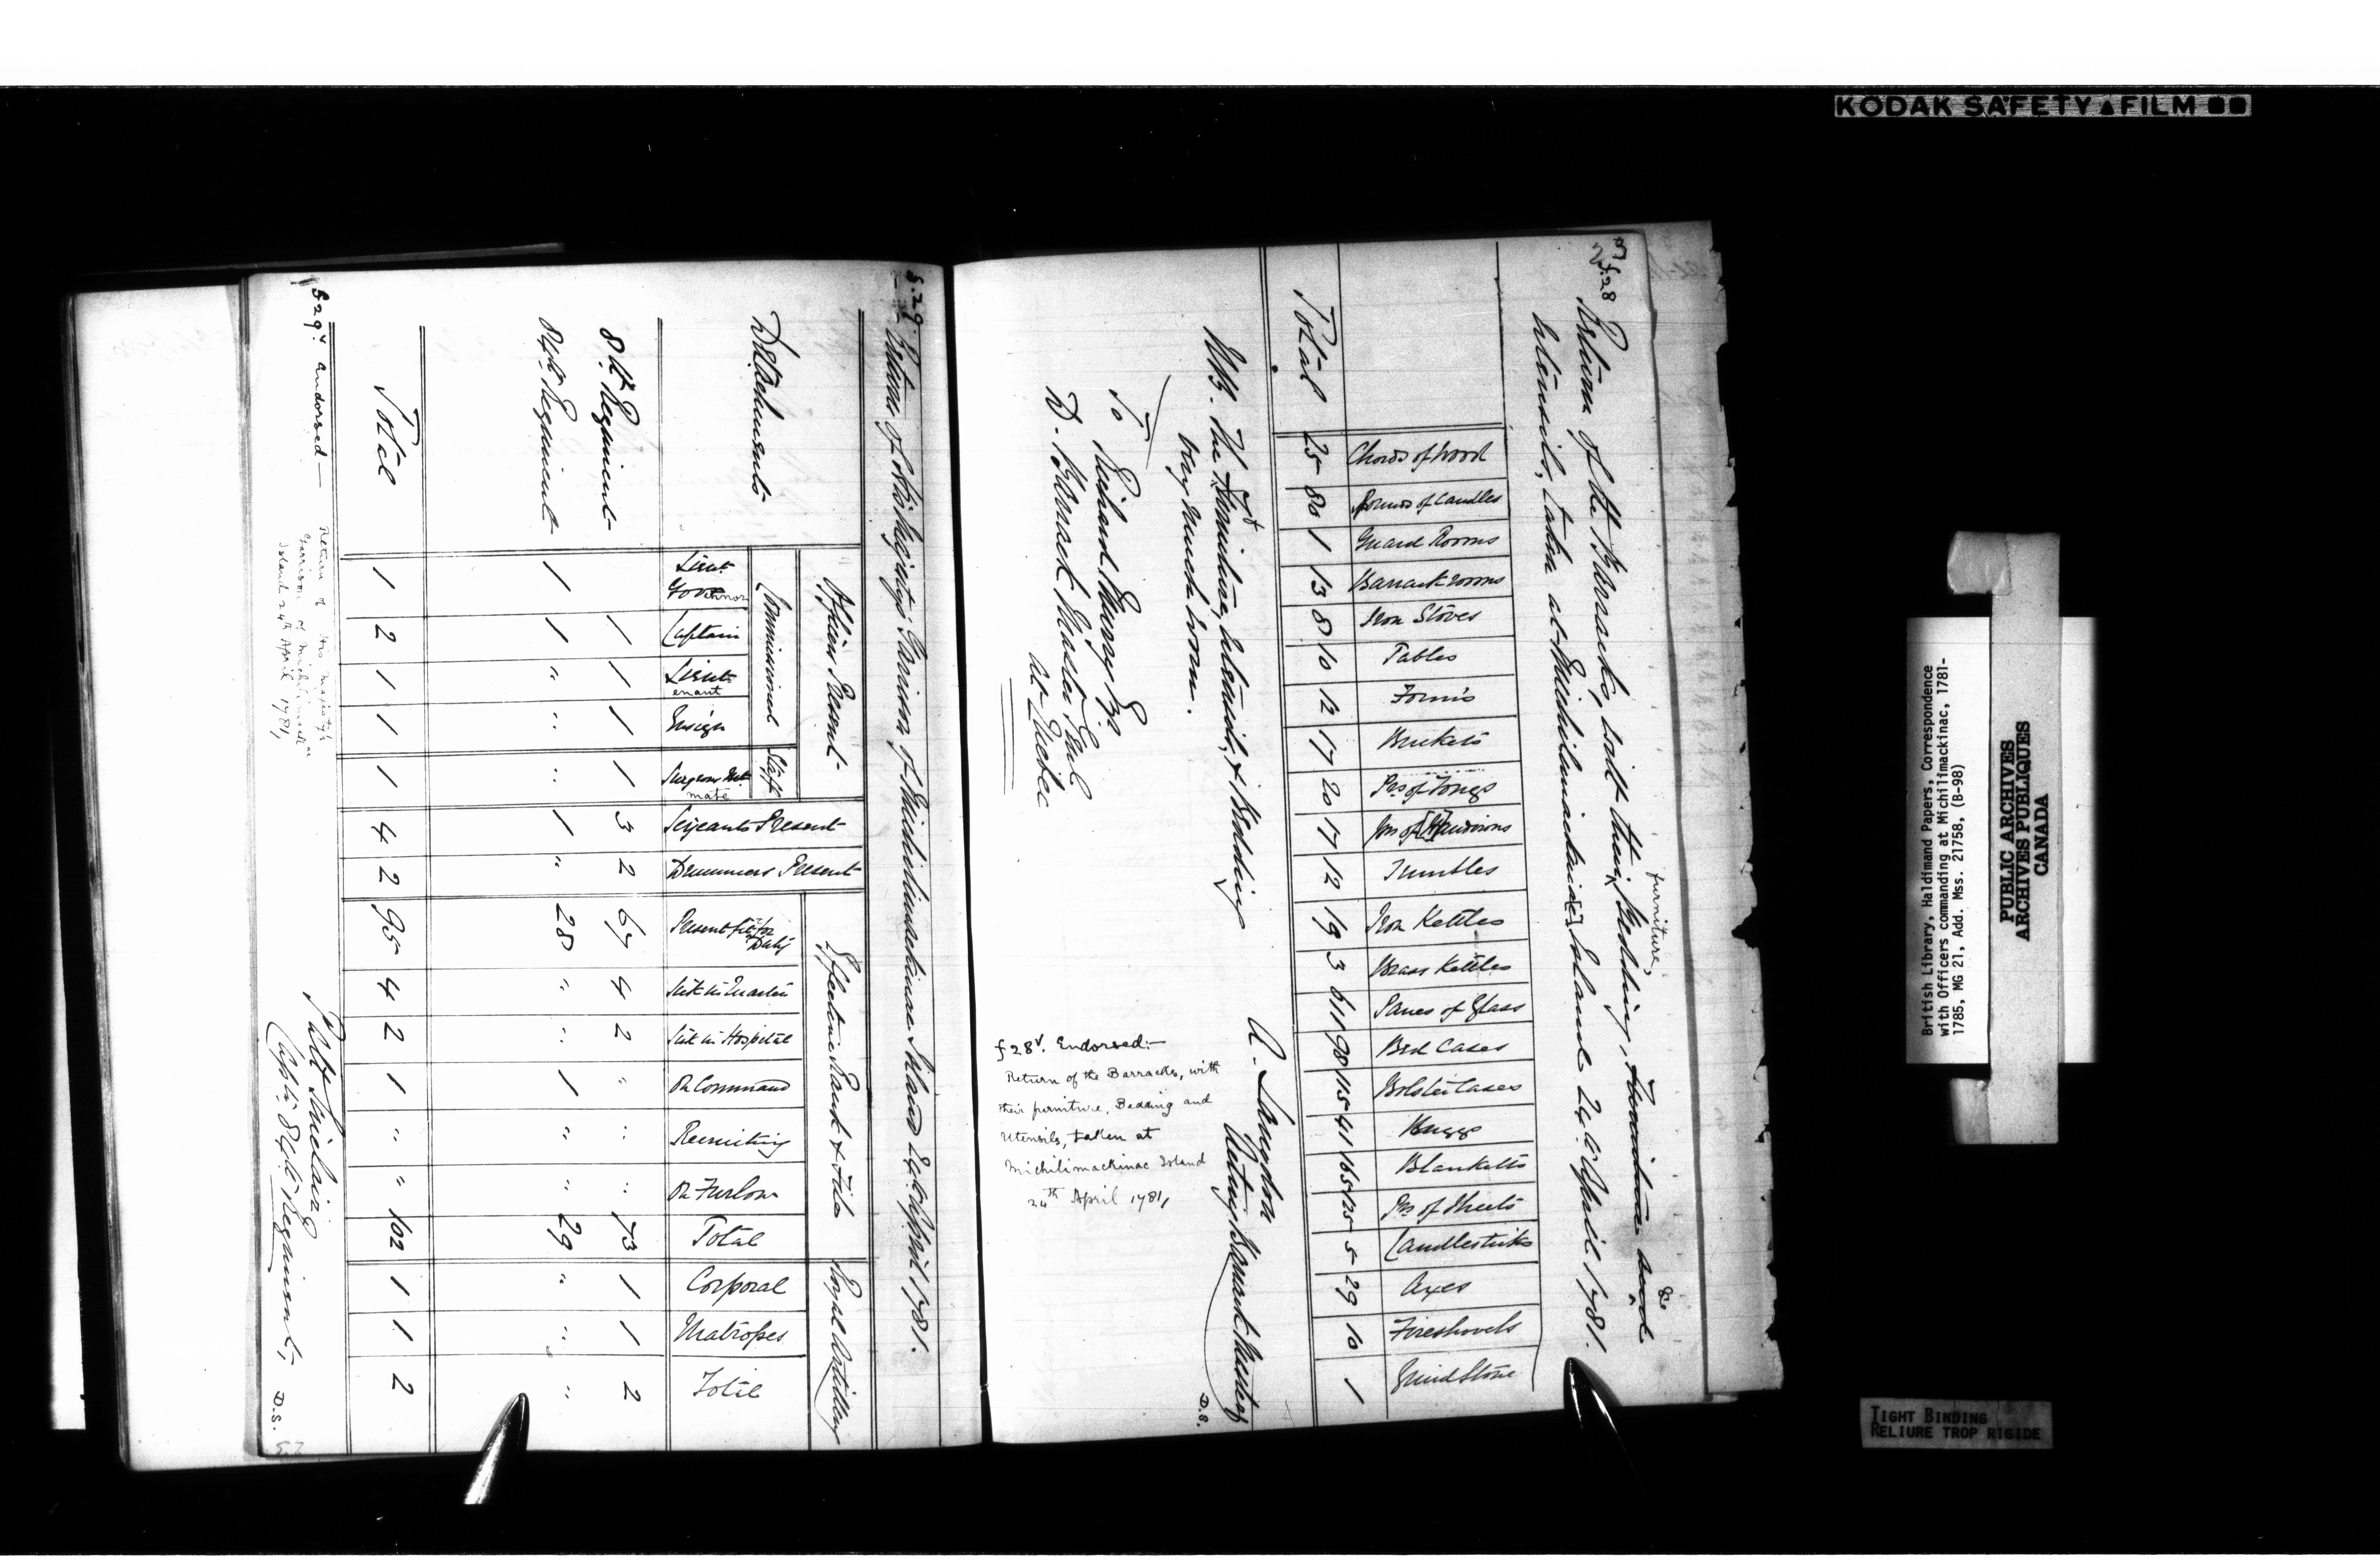 KODAK SAFETY FILM
f.28
Return of the Barracks, with their furniture, Bedding, Furniture and &
Utensils, taken at Michilimackinac Island 24th April 1781.
Chords of Wood
Pounds of Candles
Guard Rooms
Barrack rooms
Iron Stoves
Tables
Forms
Buckets
Prs of Tongs
Handirons
Trumbles
Iron Kettles
Brass Kettles
Panes of Glass
Bed Cases
Bolster Cases
Ruggs
Blanketts
Prs of Sheets
Candlesticks
Axes
Fireshovels
Grind Stone
Total 25 80 1 13 8 10 12 17 20 17 12 19 3 611 98 115 41 165 125 5 29 10 1
NB. The Furniture, Utensils, & Bedding
very much worn.
A. Langdon
Acting Barrack Master
D.S.
To Richard Murry Esqr
D. Barrack Master Genl
at Quebec
f 28v. Endorsed:—
Return of the Barracks, with
their furniture, Bedding and
Utensils, taken at
Michilimackinac Island
24th April 1781,
f.29.
Return of His Majesty's Garrison of Michilimackinac Island 24th April 1781.
Detachments
Officers Present
Effective Rank & File
Royal Artillery
Commissioned
Staff
Lieut Governor
Captain
Lieutenant
Ensign
Surgeons mate
Serjeants Present
Drummers Present
Present fit for Duty
Sick in Quarters
Sick in Hospital
On Command
Recruiting
On Furlow
Total
Corporal
Matrosses
Total
8th Regiment 1 1 1 1 3 2 67 4 2 " " " 73 1 1 2
84th Regiment 1 1 " " " 1 " 28 " " 1 " " 29 " " "
Total 1 2 1 1 1 4 2 95 4 2 1 " " 102 1 1 2
Patt Sinclair
Captn 84th Regiment,
D.S.
f 29v. endorsed —
Return of His Majesty's
Garrison of Michilimackinac
Island 24th April 1781,
British Library, Haldimand Papers, Correspondence
with Officers commanding at Michilimackinac, 1781-
1785, MG 21, Add. Mss. 21758, (B-98)
PUBLIC ARCHIVES
ARCHIVES PUBLIQUES
CANADA
TIGHT BINDING
RELIURE TROP RIGIDE